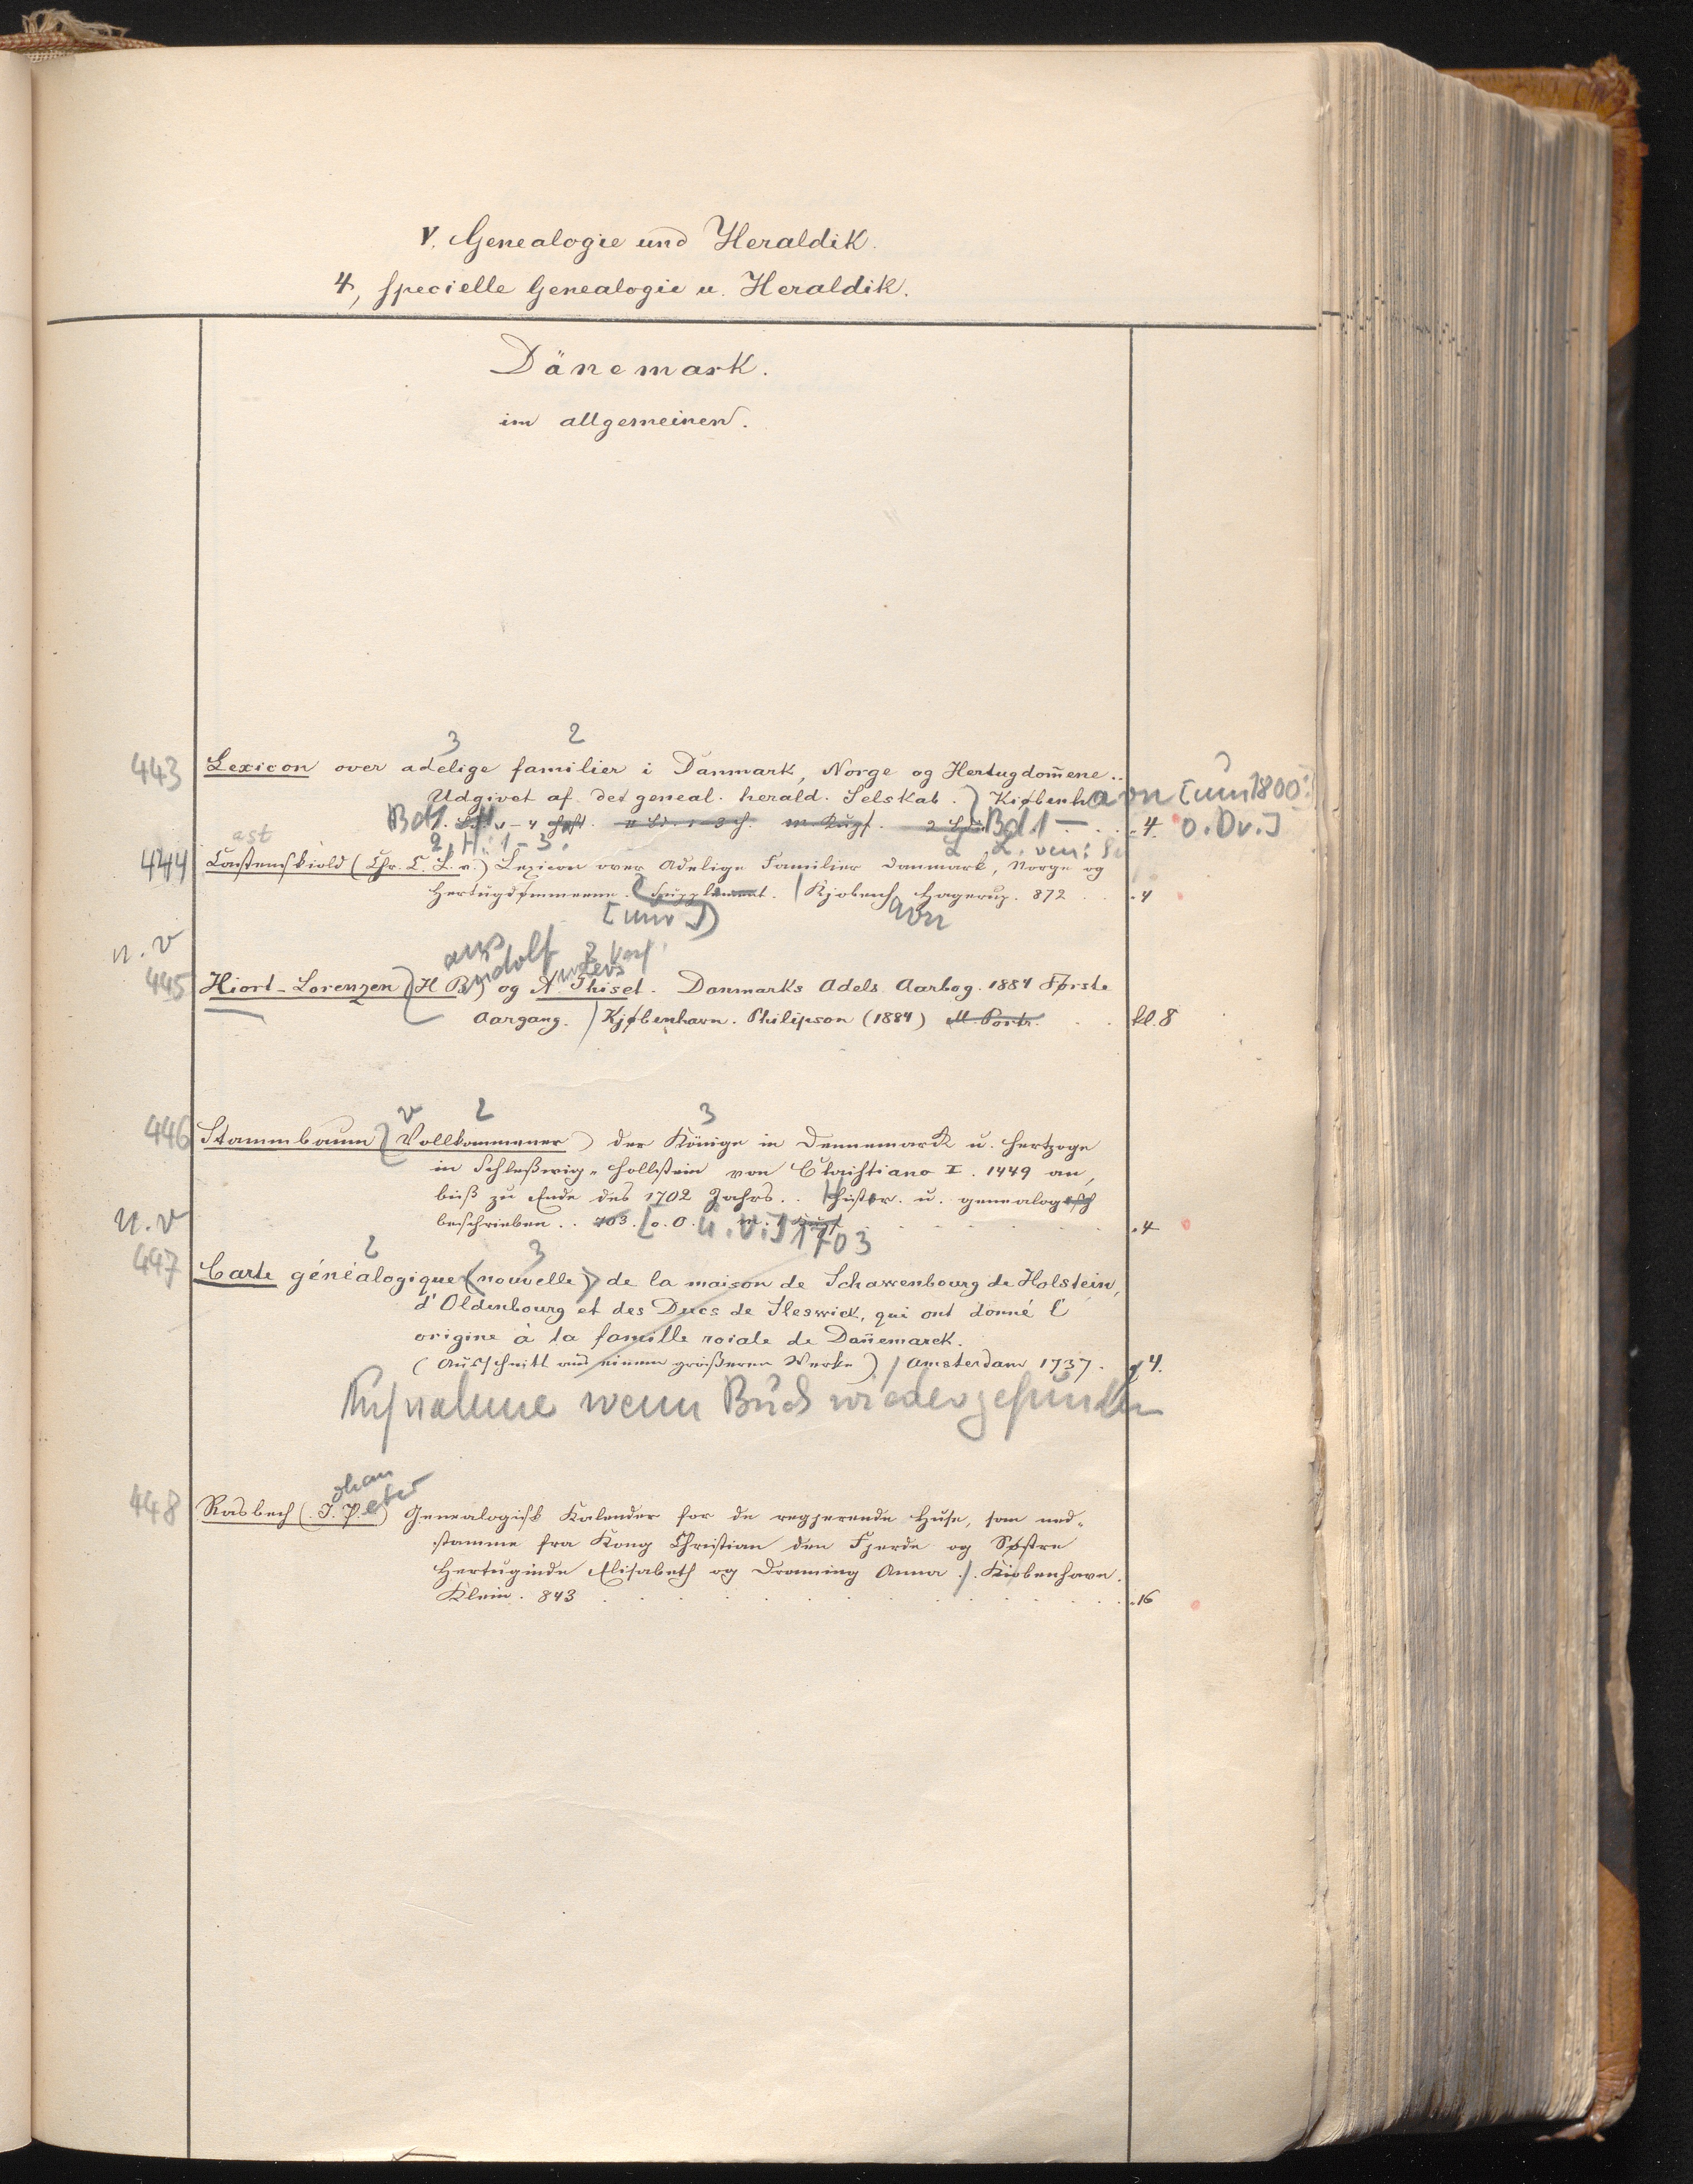 V. Genealogie und Heraldik.
4, specielle Genealogie u. Heraldik.
Dänemark.
im allgemeinen.
3 2
443 Lexicon over adelige familier i Danmark, Norge og Hertugdom̄ene..
Udgivet af det geneal. herald. Selskab. Kiøbenhavn [um 1800
Bd 1. 4 Heft. 1-3 H. m. Kupf. Bd. 1 - 4. o. Dv.]
2, H. 1-3.
ast
444 Castenskiold (Chr. C. L. v.) Lexicon over Adelige Familier Danmark, Norge og
Hertugdømmerne. Supplement. Kjobenh Hagerup. 872 . . 4
avn
n. v
ans
udolf nders
445 Hiort-Lorenzen (H R) og A. Thiset. Danmarks Adels Aarbog. 1884 Første
Aargang. Kjøbenhavn. Philipson (1884) M. Portr. . . kl. 8
v 2 3
446 Stammbaum (Vollkommener) der Könige in Dennemarck u. Hertzoge
in Schleßwig-Hollstein von Christiano I. 1449 an,
biß zu Ende des 1702 Jahrs. . Histor. u. genealogisch
beschrieben. . 703. [o. O. u. V.] 1703 . 4
n. v
2 3
447 Carte généalogique (nouvelle) de la maison de Schawenbourg de Holstein,
d'Oldenbourg et des Ducs de Sleswick, qui ont donné l'
origine à la famille roiale de Dan̄emarck.
(Ausschnitt aus einem größeren Werke) / Amsterdam 1737. g 4.
Aufnahme wenn Buch wiedergefunden
ohan
eter
448 Rasbech (J. P.) Genealogisk Kalender for de regjerende Huse, som ned-
stamme fra Kong Christian den Fjerde og Søstre
Hertuginde Elisabeth og Dronning Anna ./. Kiøbenhavn.
Klein. 843 . . . 16